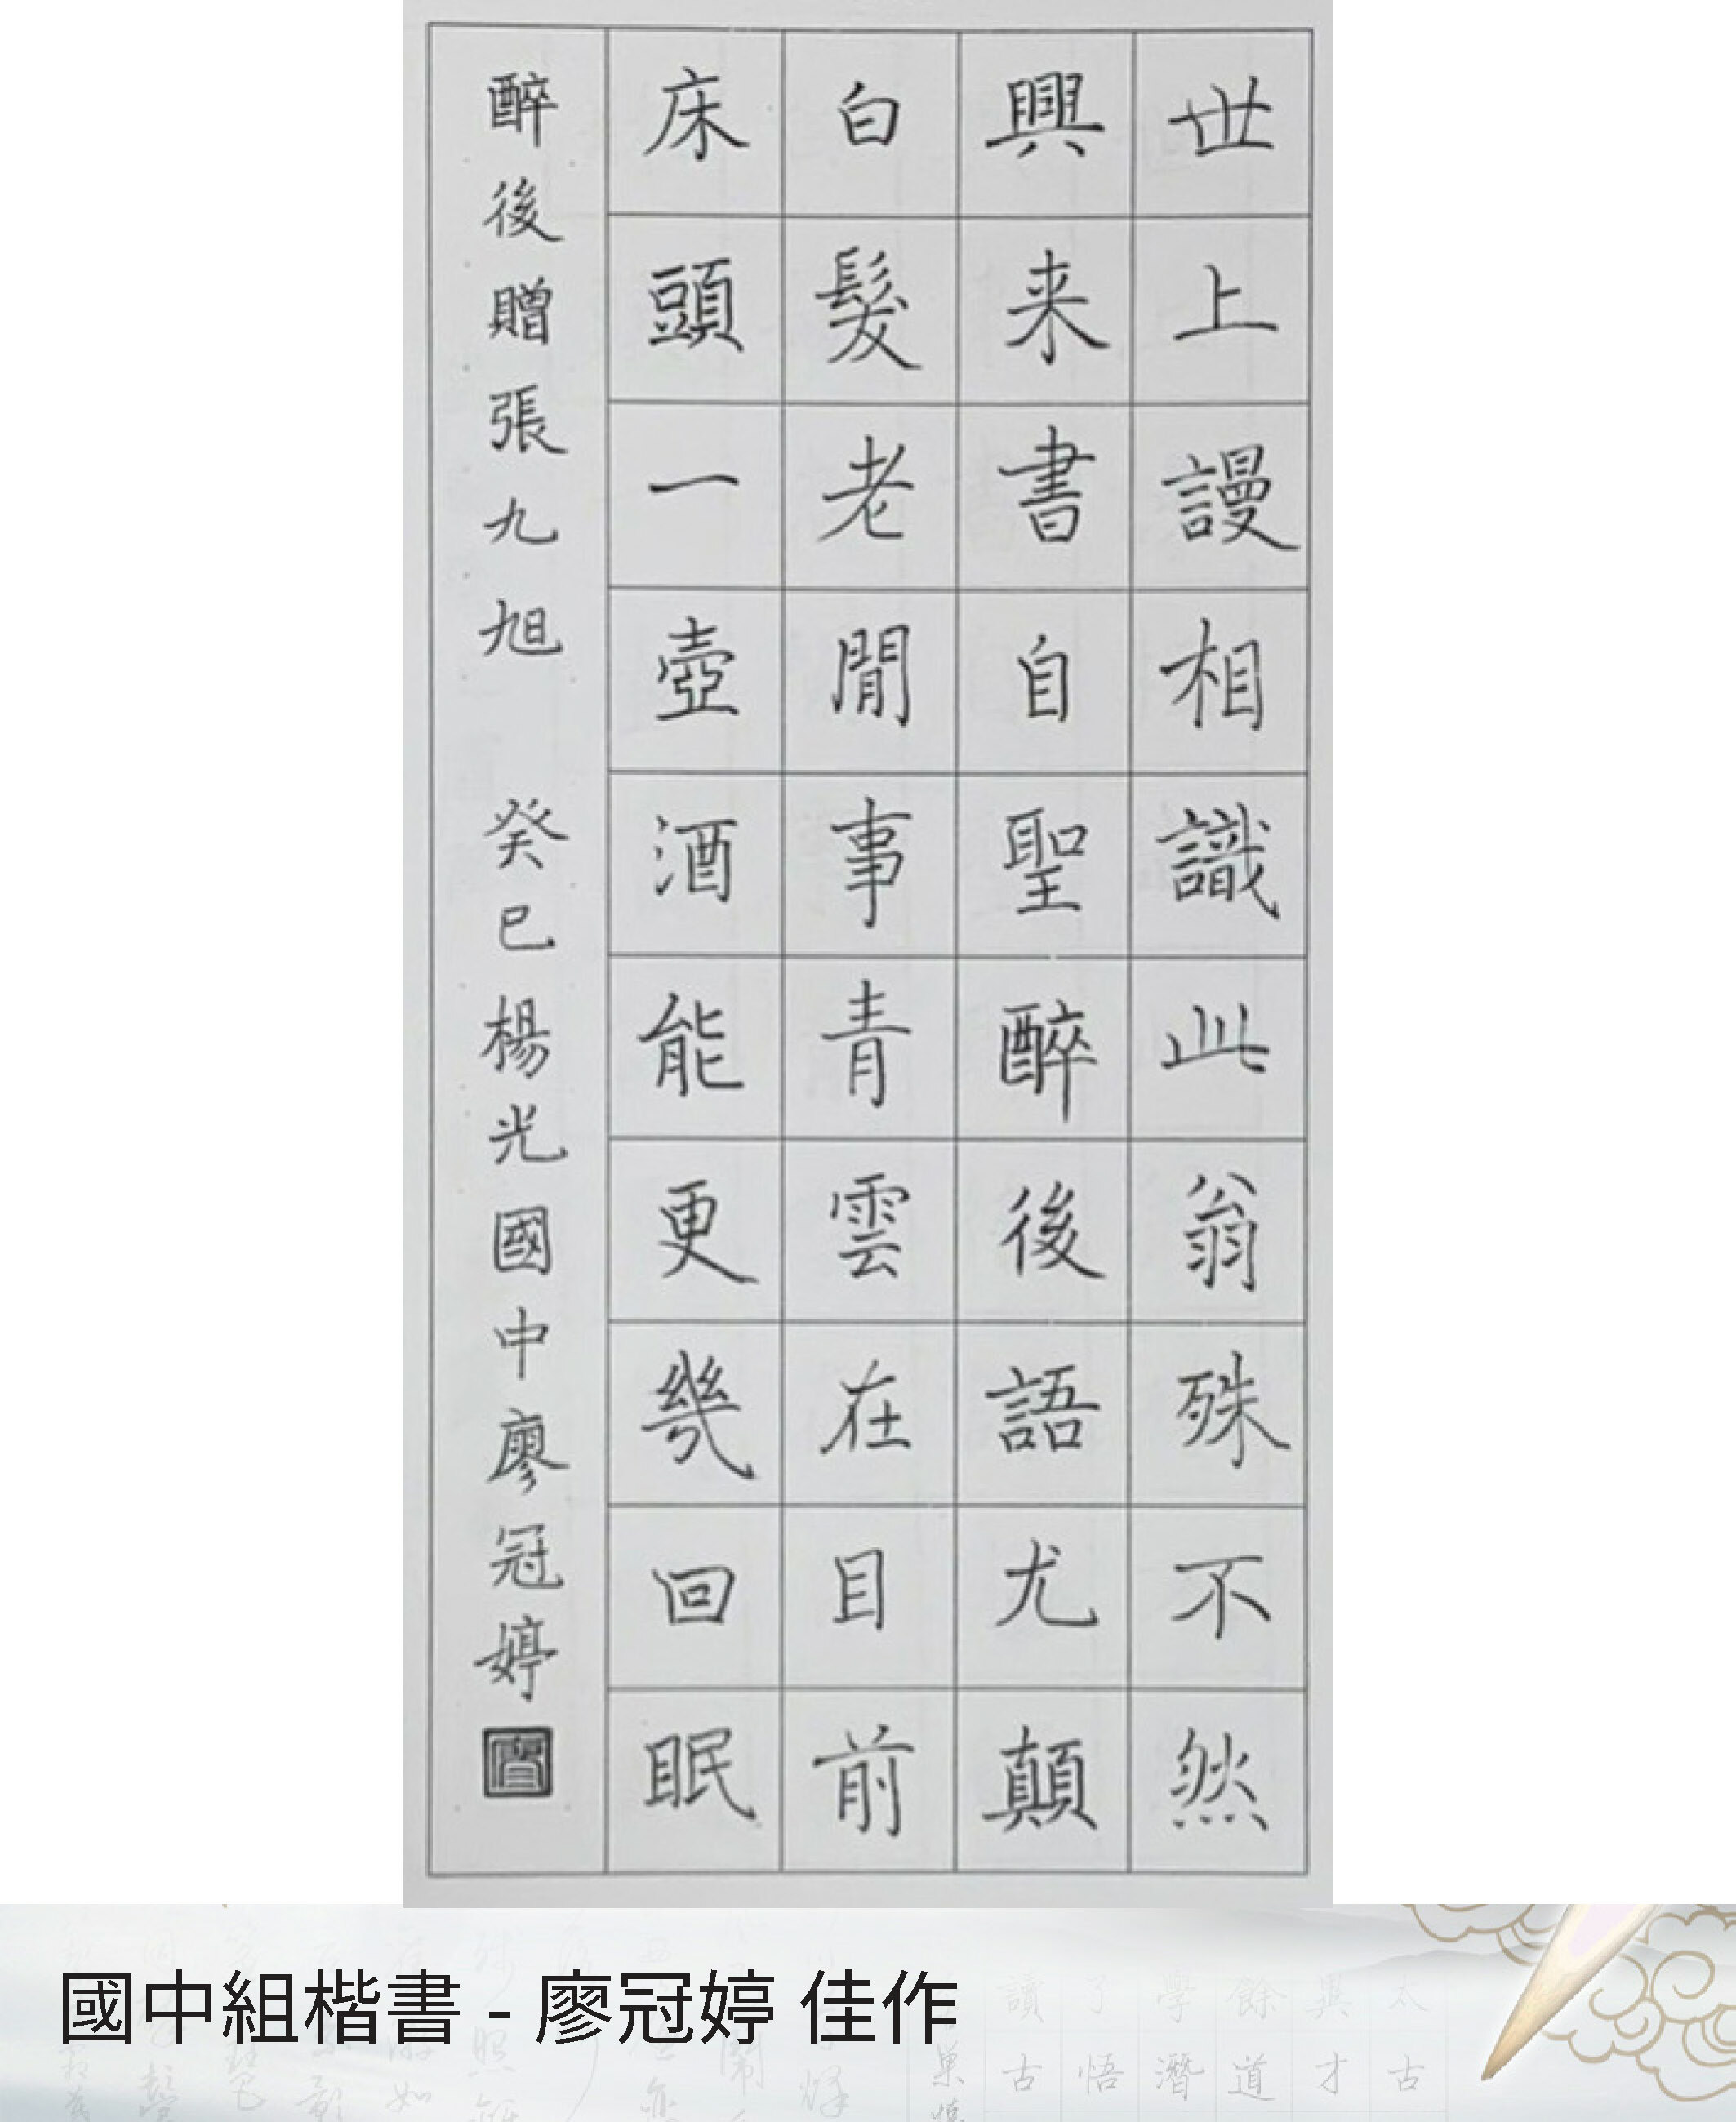 世上謾相識此翁殊不然
興来書自聖醉後語尤顛
白髮老閒事青雲在目前
床頭一壺酒能更幾回眠
醉後贈張九旭 癸巳楊光國中廖冠婷
國中組楷書 - 廖冠婷 佳作
讀了學餘與太
古悟潛道才古